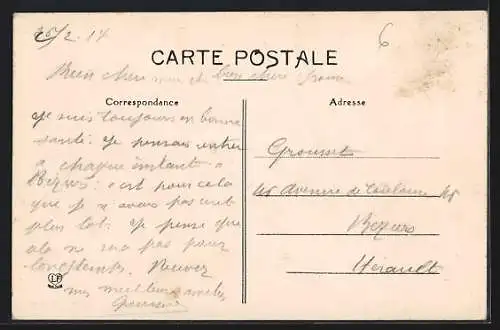 25/2. 14
6
CARTE POSTALE
Bien cher et bien chère
Correspondance
Adresse
Je suis toujours en bonne
santé. Je pensais entrer
à chaque instant à
Béziers: c'est pour cela
que je n'avais pas écrit
plus tôt. Je pense que
cela ne sera pas pour
longtemps. Recevez
mes meilleures amitiés
Grousset
45 Avenue de Toulouse 45
Beziers
Hérault